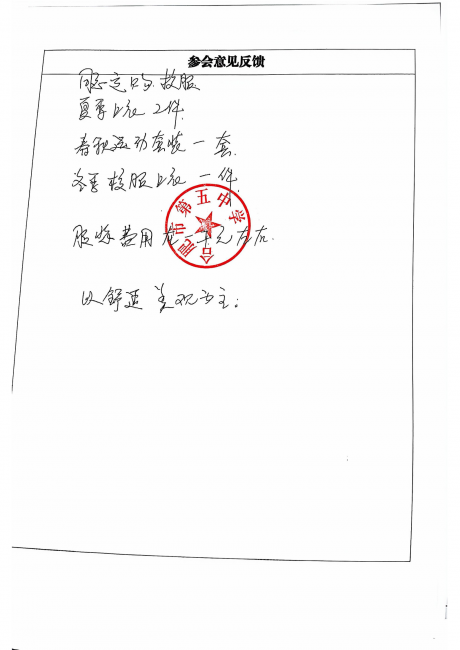 参会意见反馈
同意定购校服
夏季上衣 2件.
春秋运动套装一套.
冬季校服上衣一件.
合肥市第五中学
服妆费用在二千元左右.
以舒适美观为主。